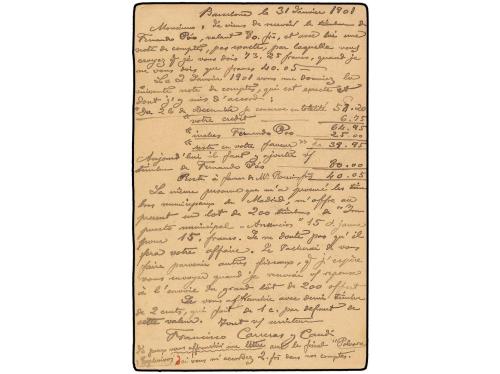 Barcelone le 31 Janvier 1901
Monsieur: Je viens de recevoir le timbre de
Fernando Póo, valant 80. frs, et avec lui une
note de comptes, pas exacte, par laquelle vous
croyez q. je vous dois 73.25 francs, quand je
ne vous dois que francs 40.05
Le 2 Janvier 1901 vous me donniez la
suivante note de comptes, qui est exacte et
dont j'y suis d'accord:
Du 26 de Décembre, je conserve en totalité 58.20
"votre crédit 6.75
64.95
"timbres Fernando Póo 25.00
"reste en votre faveur" fs 39.95
Aujourd'hui il faut y ajouter 1/
timbre de Fernando Póo 80.00
Reste à faveur de Mr. 40.05
La même personne que m'a procuré les tim-
bres municipaux de Madrid, m'offre au
present un lot de 200 timbres, de "Im-
puesto municipal - Anuncios" 15 ct. jaune
pour 15. francs. Je ne doute pas qu'il
fera votre affaire. Je tacherai de vous
faire parvenir autres fiscaux, & j'espère
vous envoyer quand je recevrai sa reponse
à l'envoie du grand lôt de 200 offert
Je vous affranchie avec demi timbre
de 2 cents, qui fait de 1 c. par defaut de
cette valeur. Tout et serviteur
Francisco Carreras y Candi
Je peux vous affranchir une lettre avec le fiscal "Pólvora
Explosivos" si vous m'accordez 2. frs dans nos comptes.